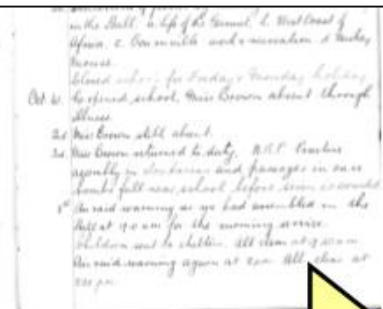 in the Hall. a. life of the Gannet, b. West Coast of
Africa, c. Communible work & recreation d Mickey
Mouse.
Closed school for Friday & Monday holiday
Oct 1st. Re opened school, Miss Brown absent through
illness.
2nd Miss Brown still absent.
3rd Miss Brown returned to duty. A.R.P. Practice
assembly in and passages in case
bombs fall near school before siren is sounded
Air raid warning as we had assembled in the
Hall at 9.0 am for the morning service.
Children sent to shelters. All clear at 9.20 am
Air raid warning again at 2 pm All clear at
2.20 pm